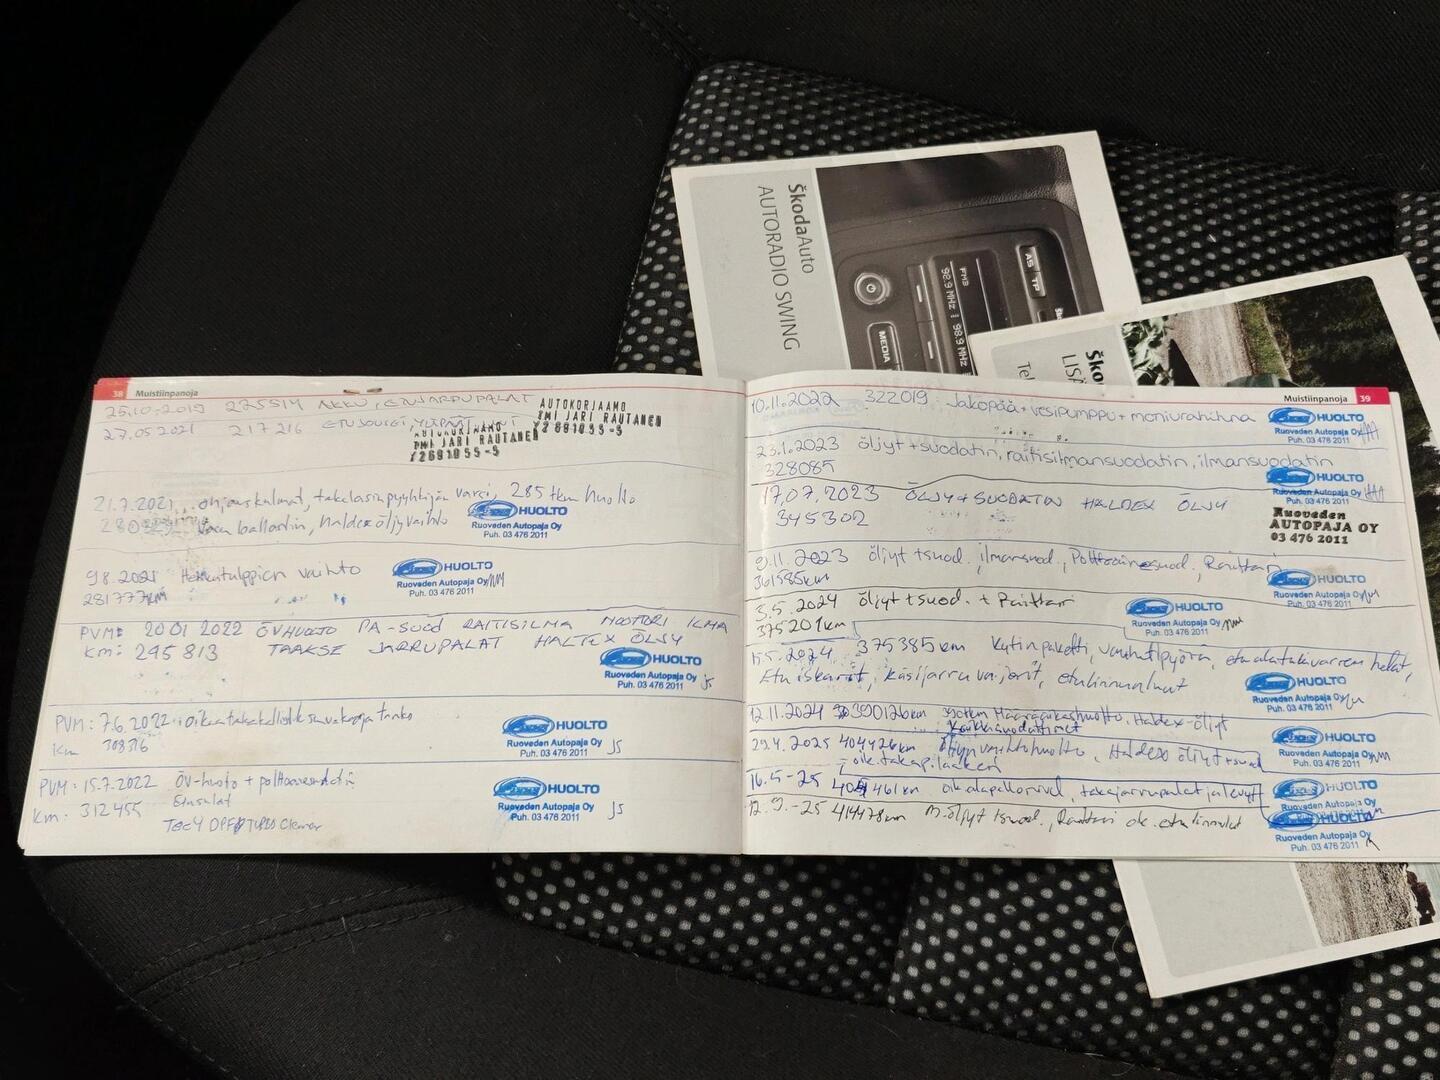 ŠkodaAuto
AUTORADIO SWING
AS
TP
FM3
98.9 MHz
98.9 M
MEDIA
Ško
LISÄ
Tel
38 Muistiinpanoja
25.10.2019 225514 AKKU, ETUJARRUPALAT
AUTOKORJAAMO
TMI JARI RAUTANEN
27.05.2021 217216
AUTOKORJAAMO
TMI JARI RAUTANEN
21.7.2021 takalasinpyyhkijän varsi, 285 tkm huolto
ballastin, Haldex öljyvaihto
HUOLTO
Ruoveden Autopaja Oy
Puh. 03 476 2011
9.8.2021 Hehkutulppien vaihto
281777KM
HUOLTO
Ruoveden Autopaja Oy
Puh. 03 476 2011
PVM: 20 01 2022 ÖVHUOLTO PA-SUOD RAITISILMA MOOTTORI ILMA
KM: 295813 TAAKSE JARRUPALAT HALTEX ÖLJY
HUOLTO
Ruoveden Autopaja Oy
Puh. 03 476 2011
JS
PVM: 7.6.2022
Km 308316
HUOLTO
Ruoveden Autopaja Oy
Puh. 03 476 2011
JS
PVM: 15.7.2022 ÖV-huolto +
Km: 312455
Tec4 DPF Cleaner
HUOLTO
Ruoveden Autopaja Oy
Puh. 03 476 2011
JS
Muistiinpanoja 39
10.11.2022 322019 Jakopää + vesipumppu + moniurahihna
HUOLTO
Ruoveden Autopaja Oy
Puh. 03 476 2011
23.1.2023 öljyt + suodatin, raitisilmansuodatin, ilmansuodatin
328085
HUOLTO
Ruoveden Autopaja Oy
17.07.2023 ÖLJY + SUODATIN HALDEX ÖLJY
345302
Ruoveden
AUTOPAJA OY
03 476 2011
9.11.2023 öljyt + suod., ilmansuod., Polttoainesuod., Raittari
361585km
HUOLTO
Ruoveden Autopaja Oy
Puh. 03 476 2011
3.5.2024 öljyt + suod. + Raittari
375201km
HUOLTO
Ruoveden Autopaja Oy
Puh. 03 476 2011
15.5.2024 375385km Kytkinpaketti, vauhtipyörä, etualatukivarren helat,
Etu iskarit, käsijarru vaijerit, etulinnunluut
HUOLTO
Ruoveden Autopaja Oy
Puh. 03 476 2011
12.11.2024 390126km 390tkm Määräaikaishuolto, Haldex-öljyt
Kaikki suodattimet
HUOLTO
Ruoveden Autopaja Oy
Puh. 03 476 2011
29.4.2025 404426km öljynvaihtohuolto, Haldex öljyt + suod
oik. takap. laakeri
16.5-25 461km oik alapallonivel, takajarrupalat ja levyt
HUOLTO
Ruoveden Autopaja Oy
12.9.-25 414478km m.öljyt + suod., Raittari etulinnunluut
HUOLTO
Ruoveden Autopaja Oy
Puh. 03 476 2011